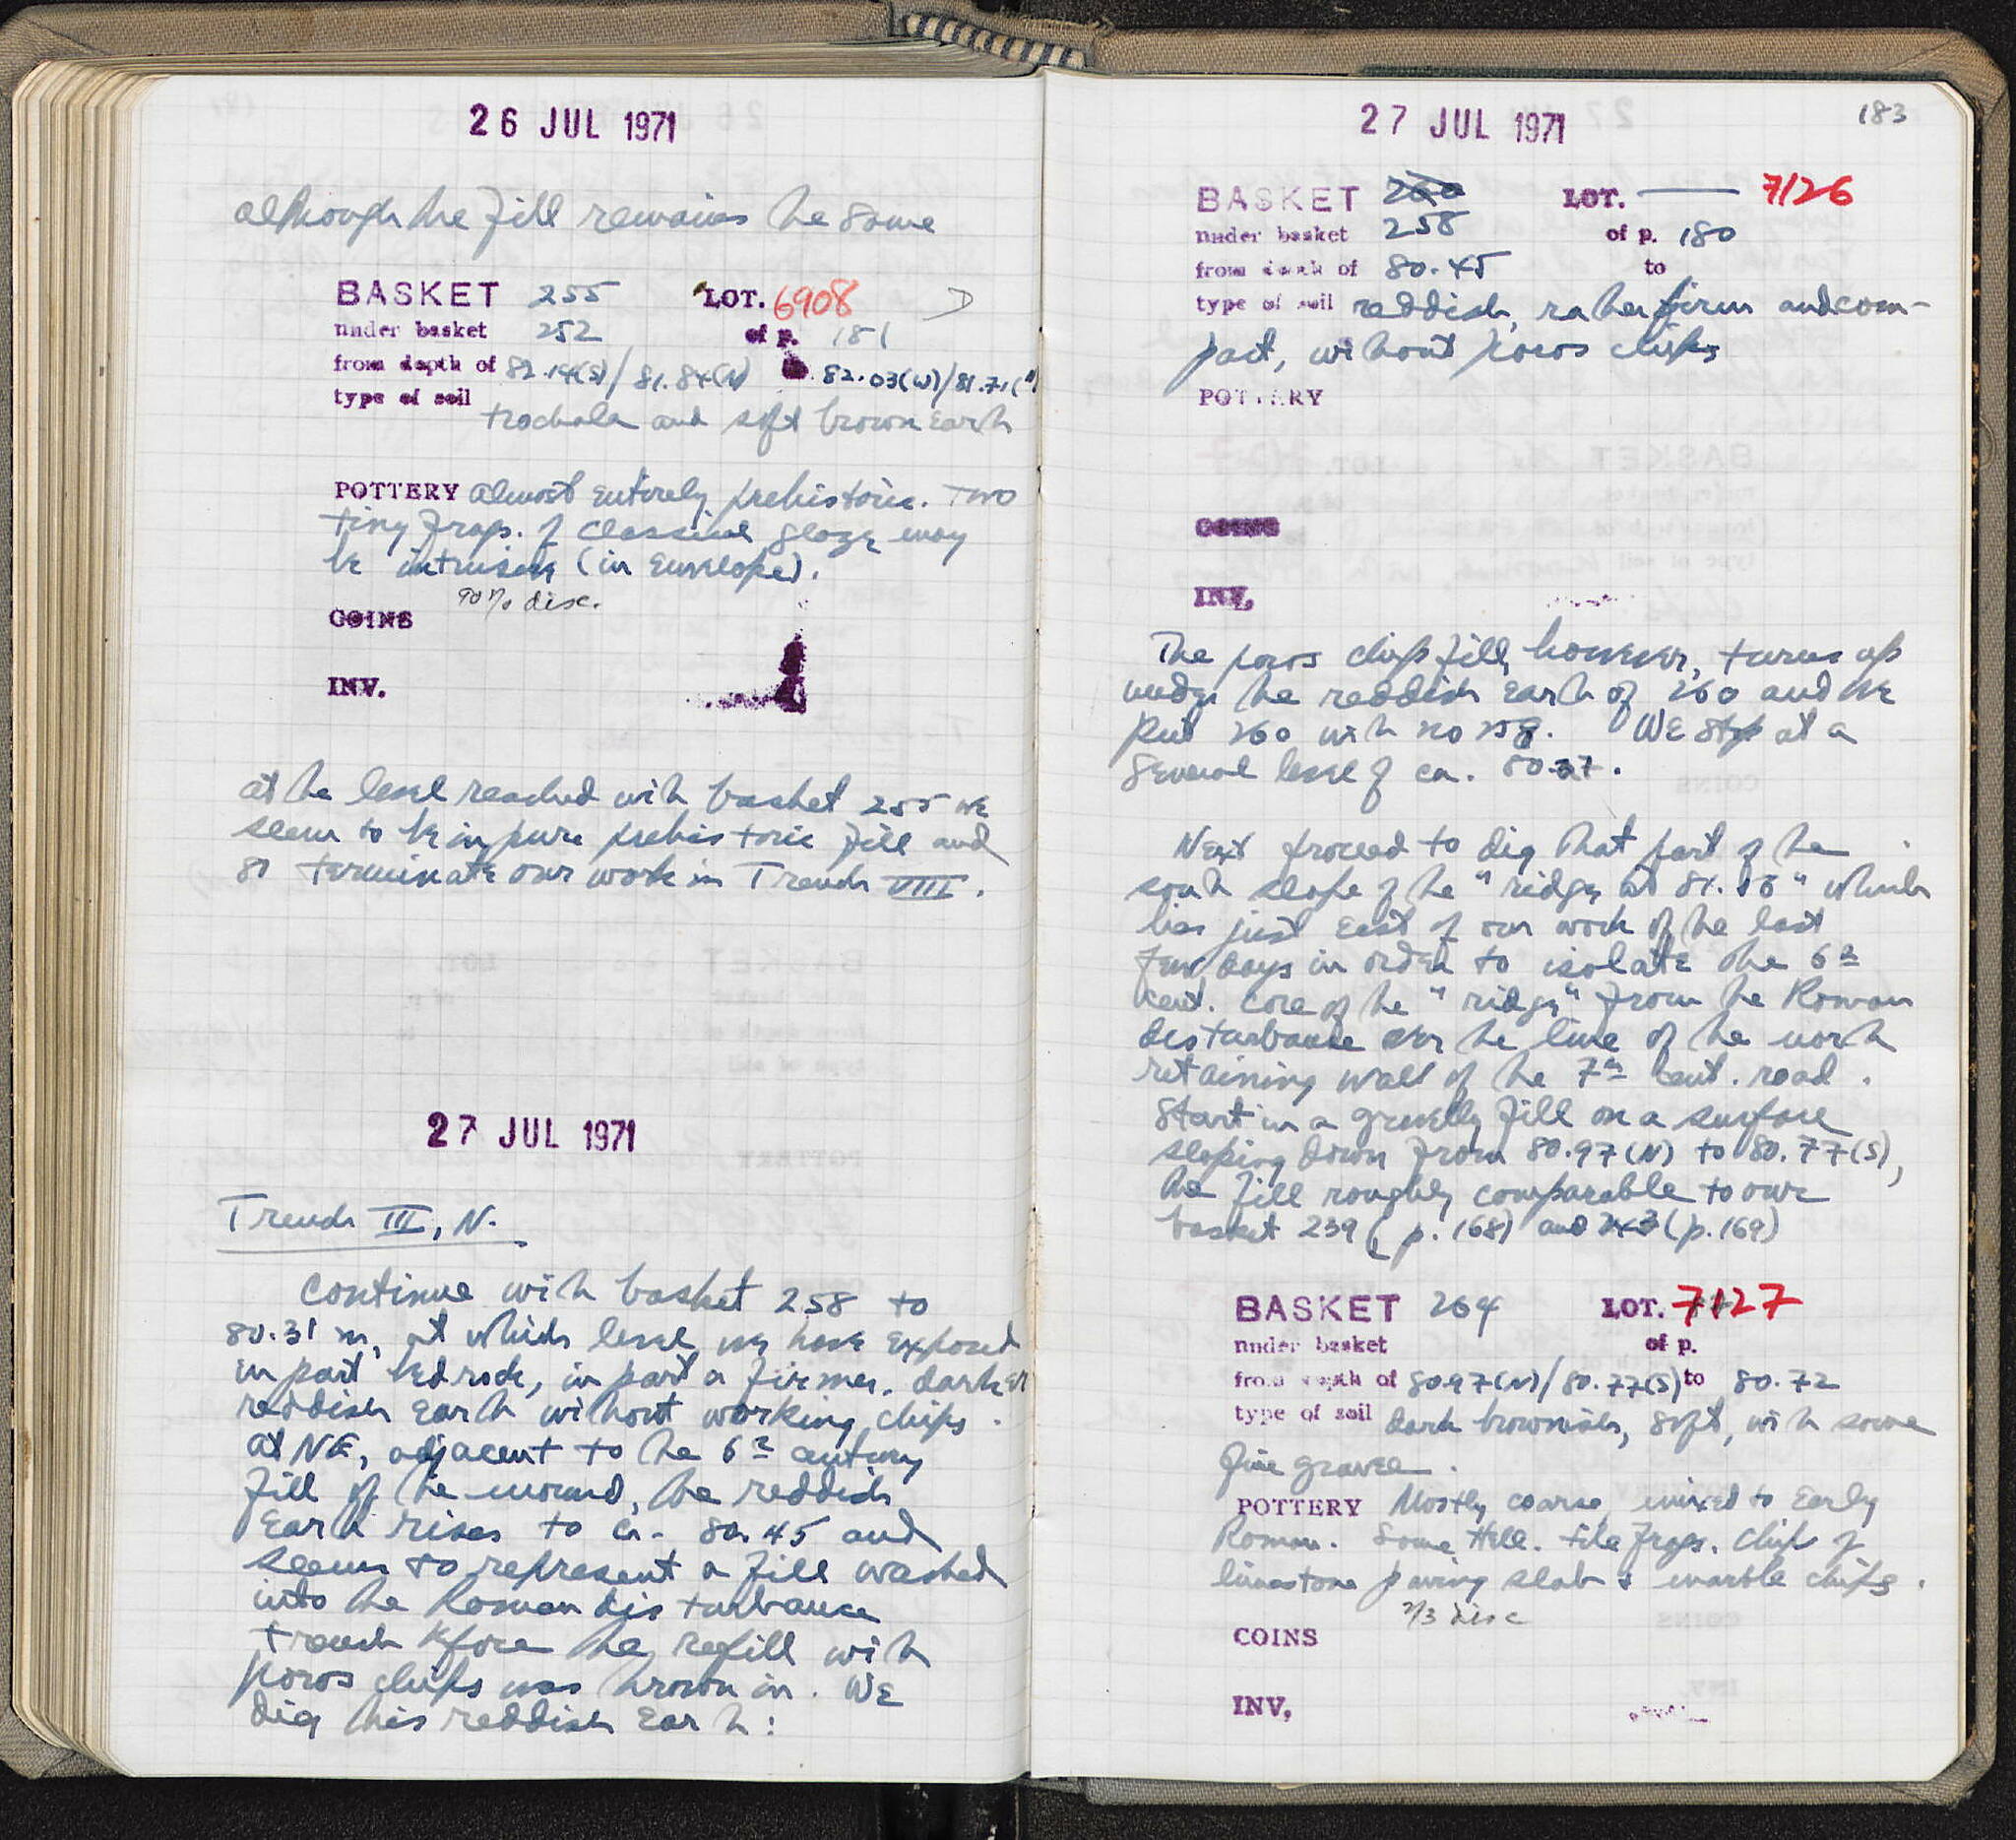 26 JUL 1971
although the fill remains the same
BASKET 255 LOT. 6908
under basket 252 of p. 181
from depth of 82.14(S)/81.84(N) 82.03(W)/81.71(
type of soil
trochala and soft brown earth
POTTERY almost entirely prehistoric. Two
tiny frags. of classical glaze may
be intrusive (in envelope).
90% disc.
COINS
INV.
at the level reached with basket 255 we
seem to be in pure prehistoric fill and
so terminate our work in Trench VIII.
27 JUL 1971
Trench III, N.
Continue with basket 258 to
80.31 m, at which level we have exposed
in part bedrock, in part a firmer, darker
reddish earth without working chips.
At NE, adjacent to the 6th century
fill of the mound, the reddish
earth rises to ca. 80.45 and
seems to represent a fill washed
into the Roman disturbance
trench before the refill with
poros chips was thrown in. We
dig this reddish earth:
27 JUL 1971
183
BASKET 260 LOT. 7126
under basket 258 of p. 180
from depth of 80.45 to
type of soil reddish, rather firm and com-
pact, without poros chips
POTTERY
COINS
INV.
The poros chip fill, however, turns up
under the reddish earth of 260 and we
put 260 with no 258. We stop at a
general level of ca. 80.27.
Next proceed to dig that part of the
south slope of the "ridge at 81. " which
lies just east of our work of the last
few days in order to isolate the 6th
cent. core of the "ridge" from the Roman
disturbance over the line of the north
retaining wall of the 7th cent. road.
Start in a gravelly fill on a surface
sloping down from 80.97(N) to 80.77(S),
the fill roughly comparable to our
basket 239 (p. 168) and 243 (p. 169)
BASKET 264 LOT. 7127
under basket of p.
from depth of 80.97(N)/80.77(S) to 80.72
type of soil dark brownish, soft, with some
fine gravel.
POTTERY Mostly coarse, mixed to Early
Roman. Some Hell. tile frags. Chip of
limestone paving slab & marble chips.
2/3 disc
COINS
INV.